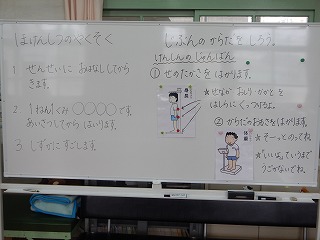 ほけんしつのやくそく
1 せんせいに おはなししてから
きます。
2. 1ねん1くみ ○○○○です。
あいさつしてから はいります。
3. しずかにすごします。
じぶんの からだを しろう。
けんしんのじゅんばん
① せのたかさを はかります。
★せなか おしり・かかとを
はしらに くっつけるよ。
② からだのおもさをはかります。
★そーっとのってね
★「いいよ」っていうまで
うごかないでね。
身長
体重